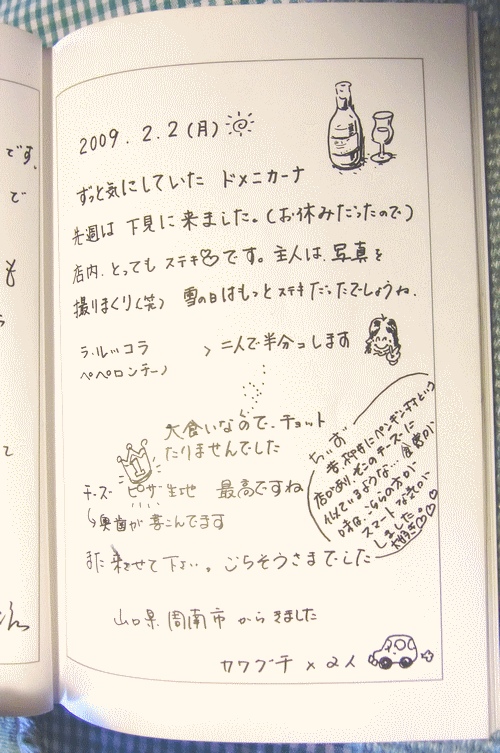 です。
で
も
2009. 2. 2 (月)
ずっと気にしていた ドメニカーナ
先週は 下見に 来ました。(お休みだったので)
店内、とっても ステキです。主人は、写真を
撮りまくり(笑) 雪の日はもっとステキだったでしょうね。
ラ・ルッコラ
ペペロンチーノ
〉二人で半分っこします
大食いなので、チョット
たりませんでした
1
チーズ ピザ 生地 最高ですね
↳奥歯が喜こんでます
ちぃず
昔、
店があり、そこのチーズに
似ているような… 食感が
味は、こちらの方が
スマートな気が
しました。
大好き♡♡
また 来させて 下さい。ごちそうさまでした
山口県 周南市 からきました
カワブチ × 2人